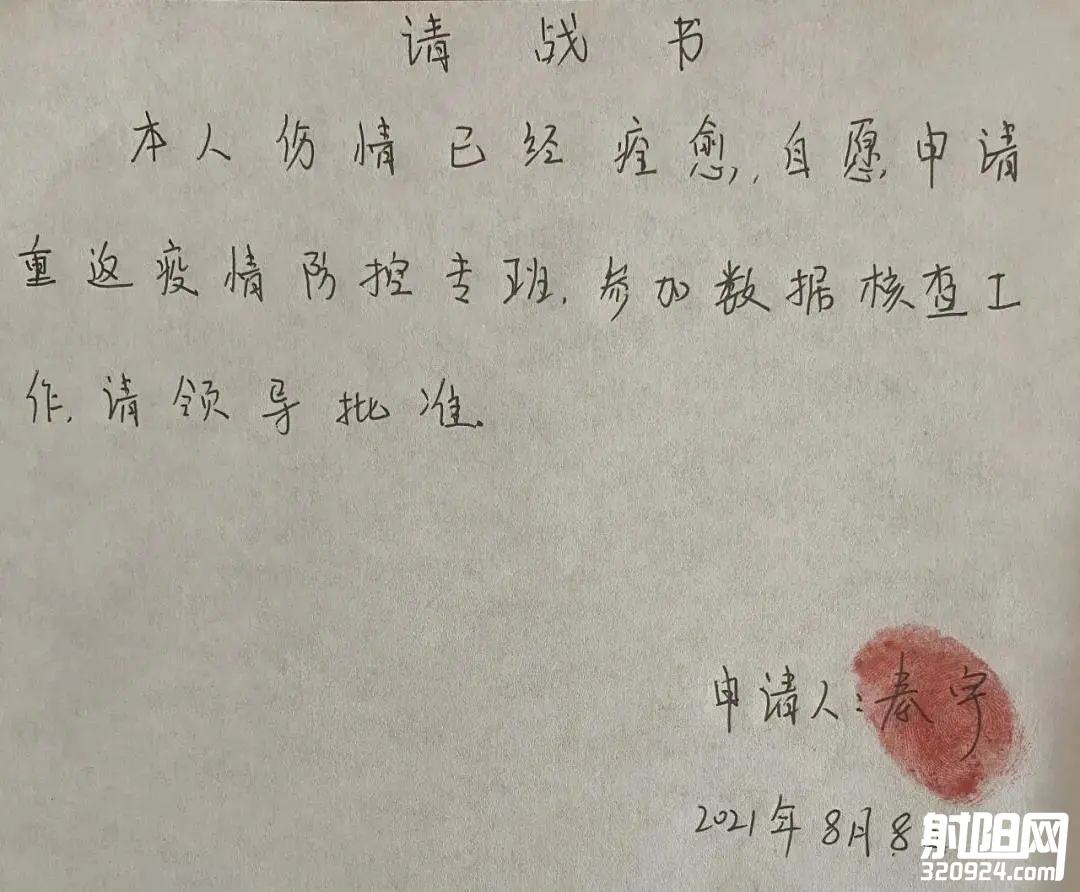 请战书
本人伤情已经痊愈,自愿申请
重返疫情防控专班,参加数据核查工
作,请领导批准.
申请人:秦宇
2021年8月8
射阳网
320924.com